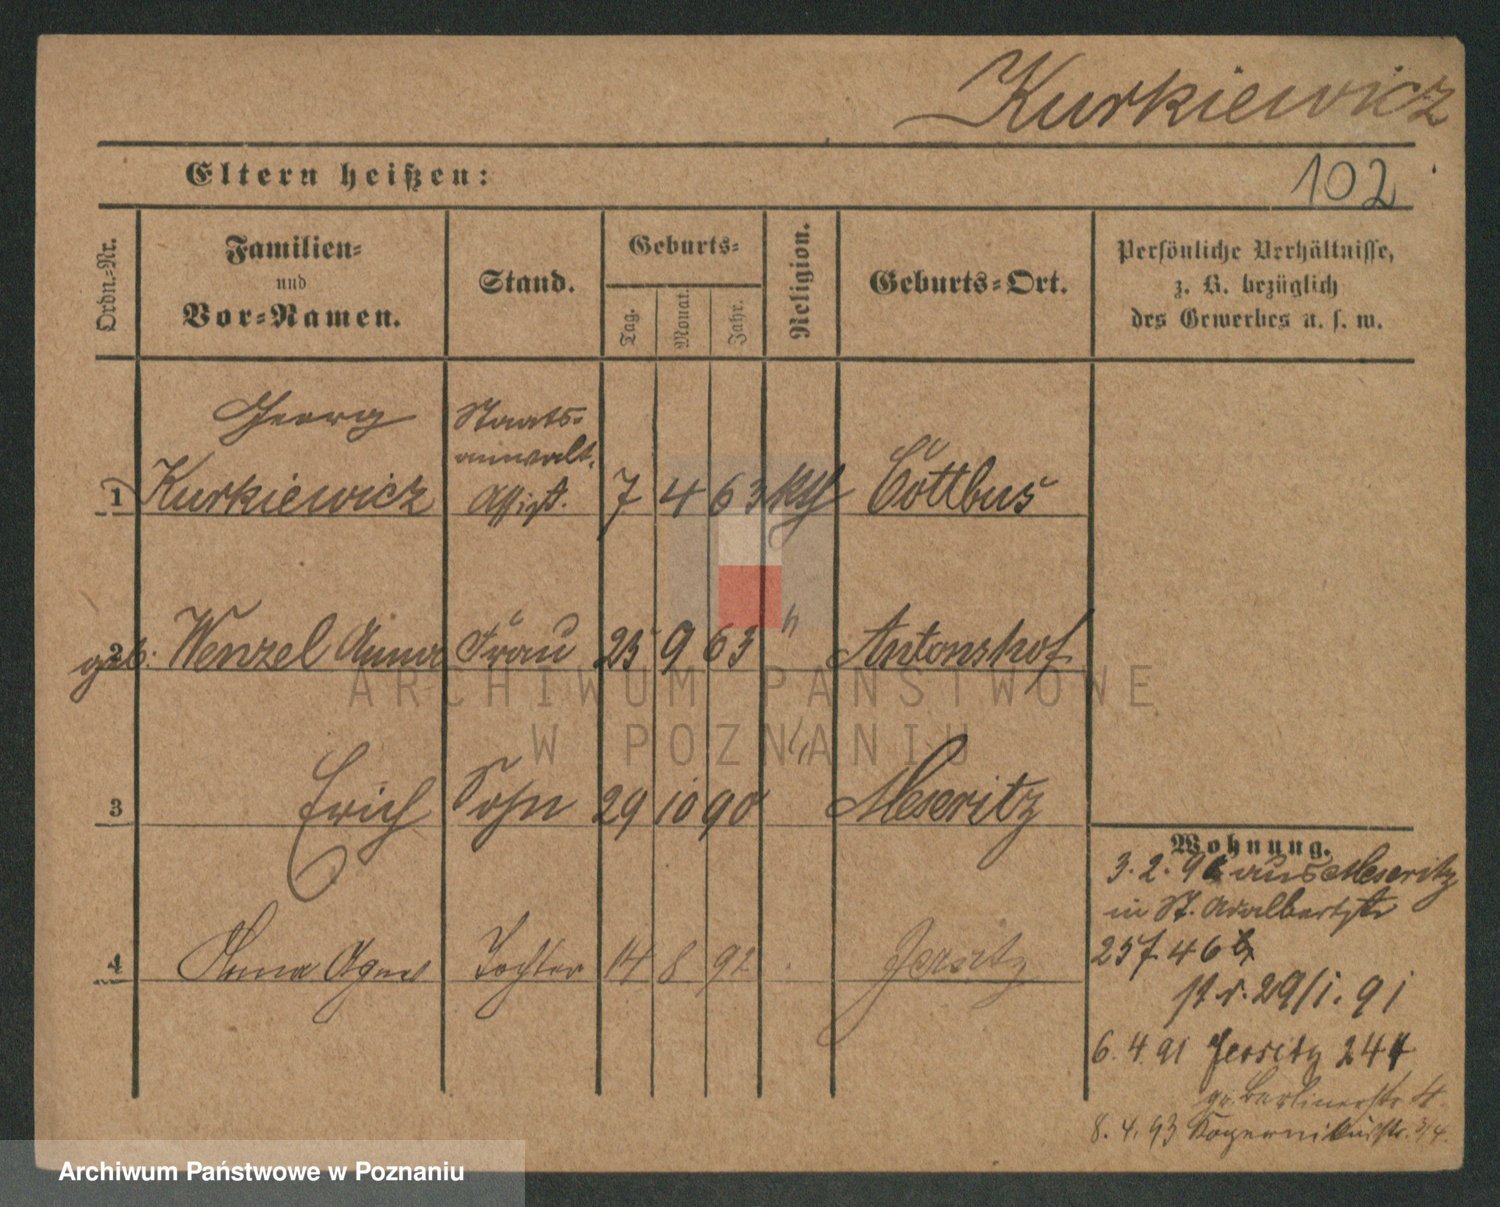 Kurkiewicz
Eltern heißen:
102
Ordn.-Nr.
Familien-
und
Vor-Namen.
Stand.
Geburts-
Tag.
Monat.
Jahr.
Religion.
Geburts-Ort.
Persönliche Verhältnisse,
z. B. bezüglich
des Gewerbes u. s. w.
Georg Staats-
anwalt.
1 Kurkiewicz Assist. 7 4 63 kth Cottbus
2 geb. Wenzel Anna Frau 25 9 63 " Antonshof
3 Erich Sohn 29 10 90 " Meseritz
4 Anna Agnes Tochter 14 8 92 Jersitz
Wohnung.
3. 2. 91 aus Meseritz
in St. Adalbertstr
46
29/1. 91
6. 4. 91 Jersitz 244
gr. Berlinerstr
8. 4. 93 Kopernikusstr. 3/4.
ARCHIWUM PAŃSTWOWE
W POZNANIU
Archiwum Państwowe w Poznaniu